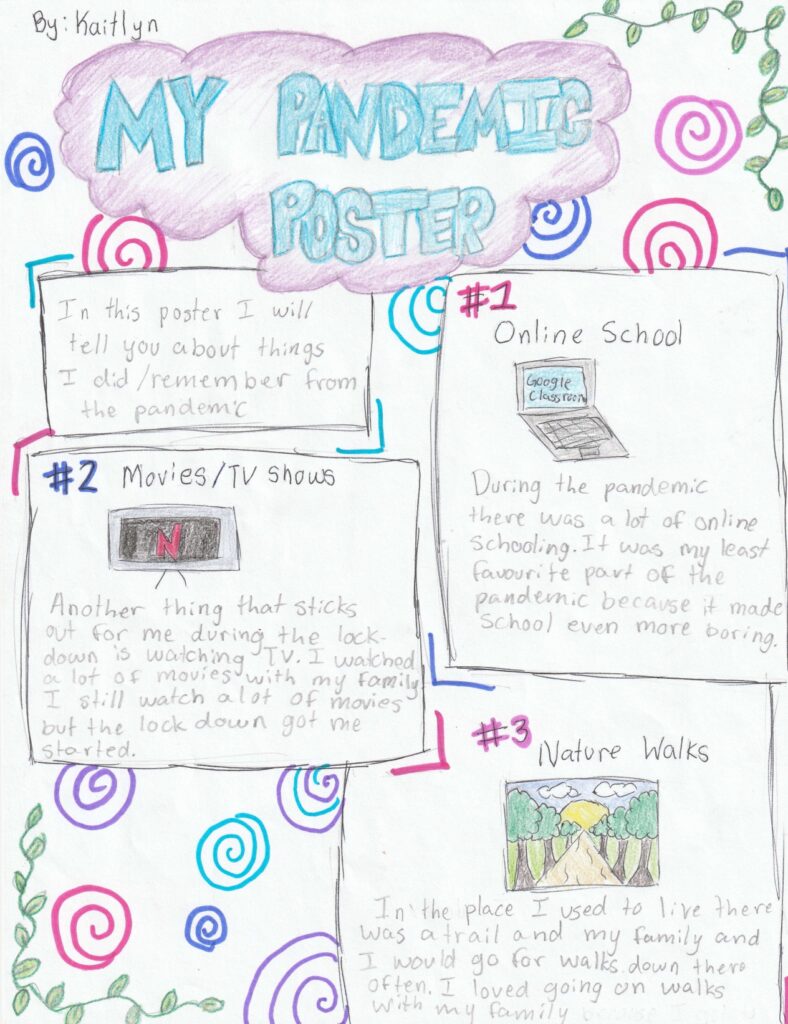 By: Kaitlyn
MY PANDEMIC
POSTER
In this poster I will
tell you about things
I did/remember from
the pandemic
#1
Online School
Google
Classroom
During the pandemic
there was a lot of online
schooling. It was my least
favourite part of the
pandemic because it made
school even more boring.
#2 Movies/TV shows
N
Another thing that sticks
out for me during the lock-
down is watching TV. I watched
a lot of movies with my family
I still watch a lot of movies
but the lock down got me
started.
#3
Nature Walks
In the place I used to live there
was a trail and my family and
I would go for walks down there
often. I loved going on walks
with my family because I